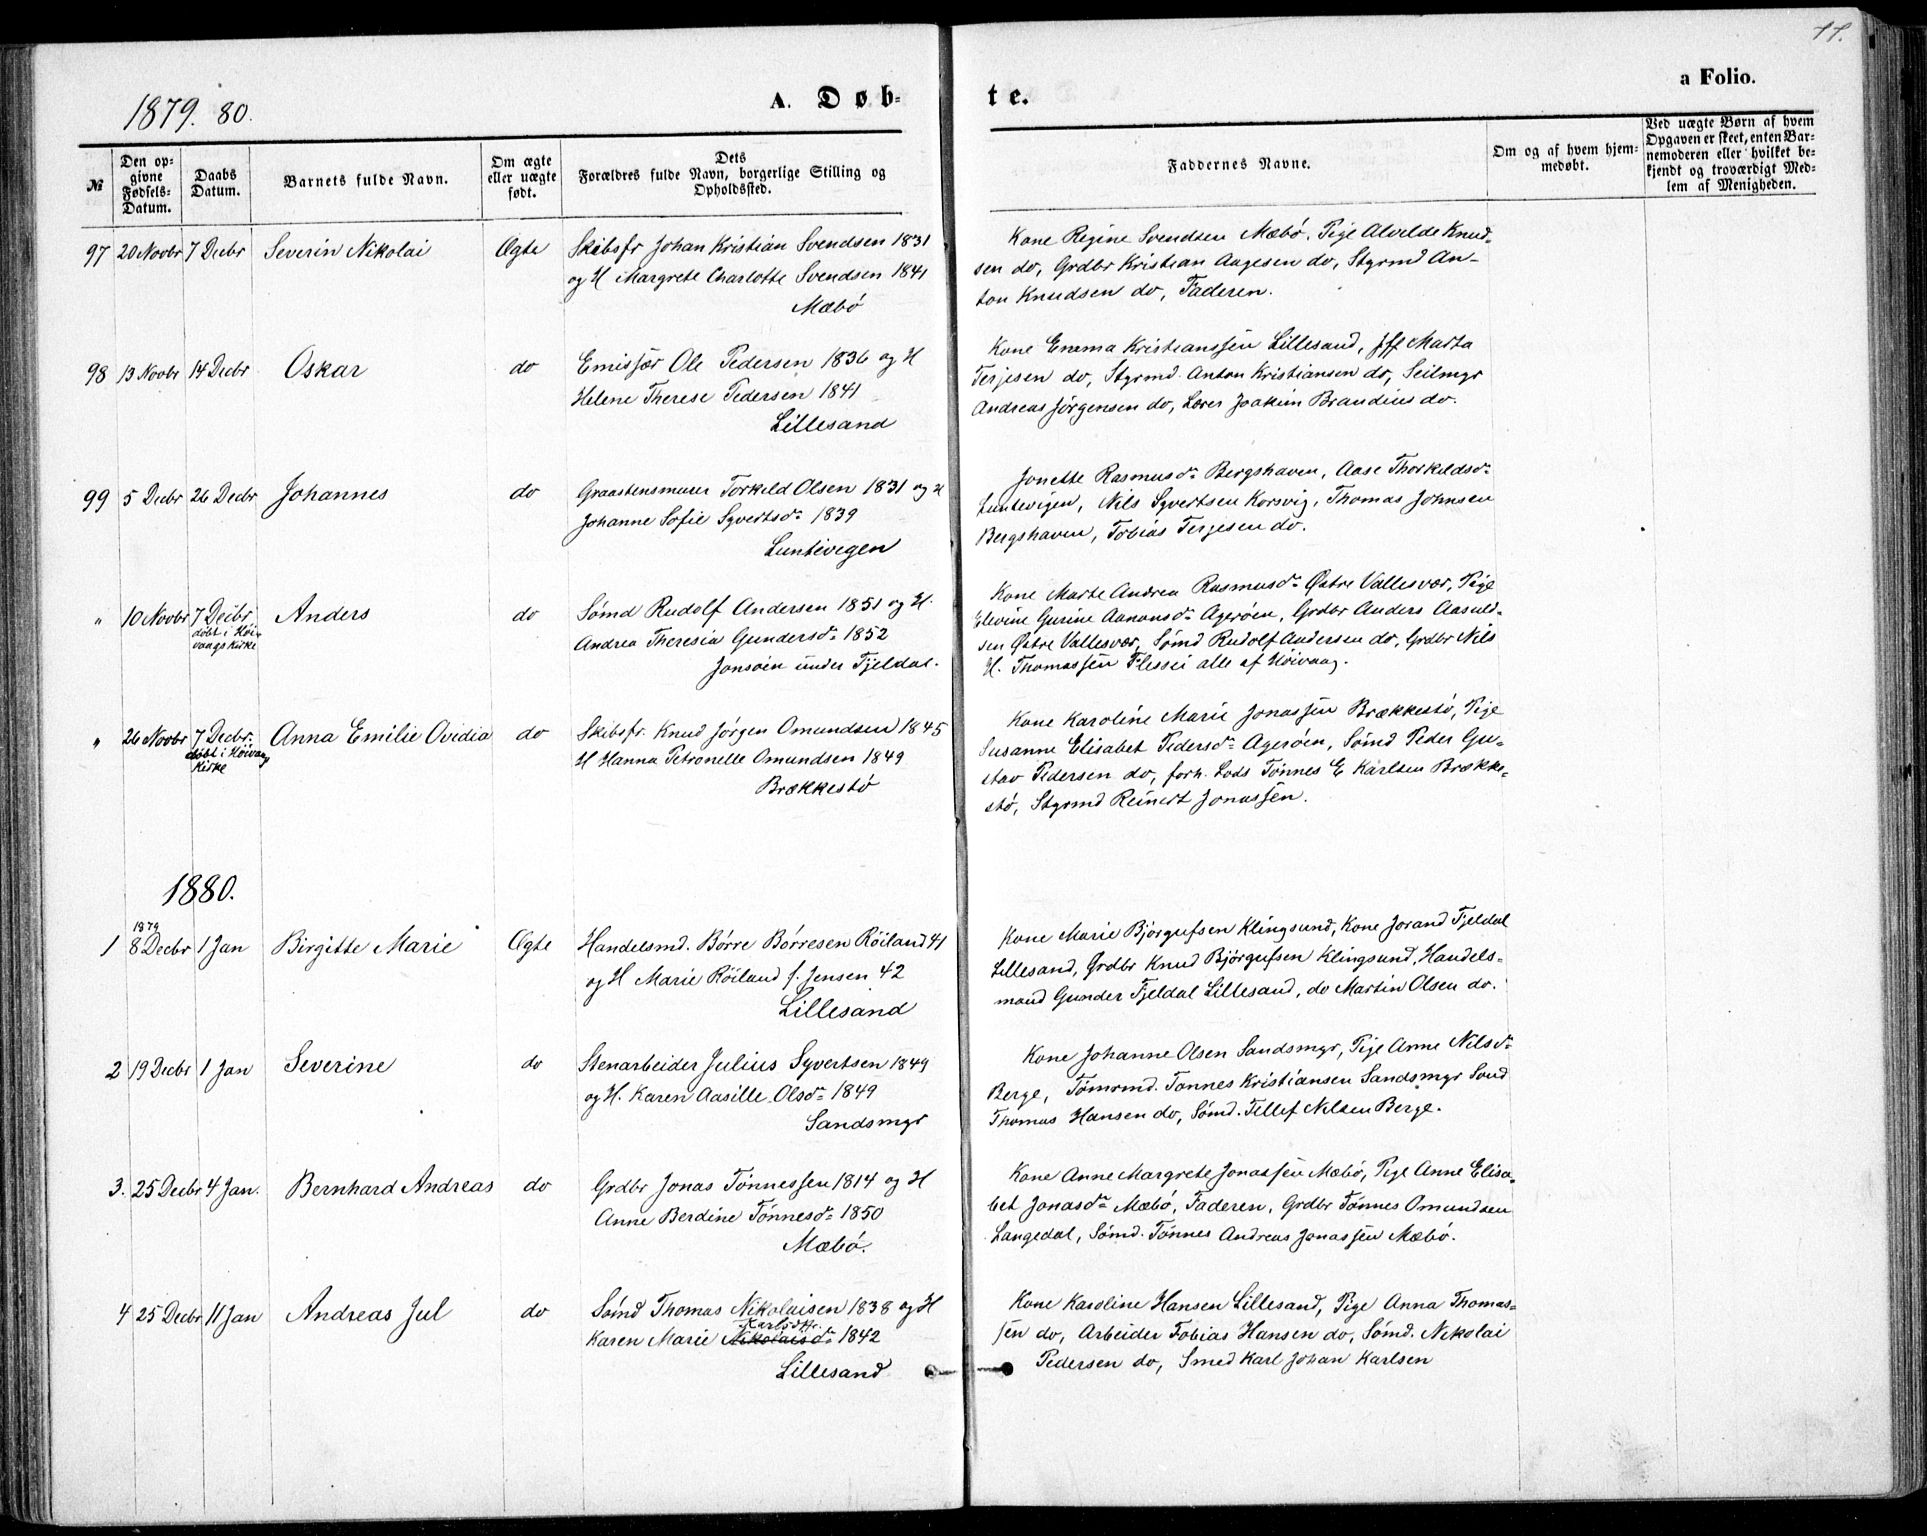 1879. 80.
A. Døb-
te.
a Folio.
11.
№
Den op-
givne
Fødsels-
Datum.
Daabs
Datum.
Barnets fulde Navn.
Om ægte
eller uægte
født.
Dets
Forældres fulde Navn, borgerlige Stilling og
Opholdssted.
Faddernes Navne.
Om og af hvem hjem-
medøbt.
Ved uægte Børn af hvem
Opgaven er skeet, enten Bar-
nemoderen eller hvilket be-
kjendt og troværdigt Med-
lem af Menigheden.
97 20 Novbr 7 Decbr Severin Nikolai Ægte Skibsfr Johan Kristian Svendsen 1831
og H Margrete Charlotte Svendsen 1841
Mæbø
Kone Regine Svendsen Mæbø, Pige Alvilde Knud-
sen do, Grdbr Kristian Aagesen do, Styrmd An-
ton Knudsen do, Faderen.
98 13 Novbr 14 Decbr Oskar do Emissær Ole Pedersen 1836 og H
Helene Therese Pedersen 1841
Lillesand
Kone Emma Kristianssen Lillesand, Jff Marta
Terjesen do, Styrmd. Anton Kristiansen do, Seilmgr
Andreas Jørgensen do, Lærer Joakim Brandius do.
99 5 Decbr 26 Decbr Johannes do Graastensmurer Torkild Olsen 1831 og H
Johanne Sofie Syvertsd: 1839
Luntevigen
Jonette Rasmusd: Bergshaven, Aase Thorkildsd:
Luntevigen, Nils Syvertsen Korsvig, Thomas Johnsen
Bergshaven, Tobias Terjesen do.
" 10 Novbr 7 Decbr Anders do Sømd Rudolf Andersen 1851 og H.
døbt i Høi-
vaags Kirke
Andrea Theresia Gundersd: 1852
Jonsøen under Tjeldal.
Kone Marte Andrea Rasmusd: Østre Vallesvær, Pige
Elevine Gurine Aanonsd: Agerøen, Grdbr Anders Aasuld-
sen Østre Vallesvær, Sømd Rudolf Andersen do, Grdbr Nils
H. Thomassen alle af Høivaag.
" 26 Novbr 7 Decbr. Anna Emilie Ovidia do Skibsfr. Knud Jørgen Omundsen 1845
døbt i Høivaag
Kirke
H Hanna Petronelle Omundsen 1849
Brækkestø
Kone Karoline Marie Jonassen Brækkestø, Pige
Susanne Elisabet Pedersd: Agerøen, Sømd Peder Gu-
stav Pedersen do, forh. Lods Tønnes E Karlsen Brække-
stø, Styrmd Reinert Jonassen.
1880.
1879
1 8 Decbr 1 Jan Birgitte Marie Ægte Handelsmd. Børre Børresen Röiland 41
og H Marie Röiland f. Jensen 42
Lillesand
Kone Marie Bjørgufsen Klingsund, Kone Jorand Tjeldal
Lillesand, Grdbr Knud Bjørgufsen Klingsund, Handels-
mand Gunder Tjeldal Lillesand, do Martin Olsen do.
2 19 Decbr 1 Jan Severine do Stenarbeider Julius Syvertsen 1849
og H. Karen Aasille Olsd: 1849
Sandsmyr
Kone Johanne Olsen Sandsmyr, Pige Anne Nilsd:
Berge, Tømrmd. Tønnes Kristiansen Sandsmyr Sømd
Thomas Hansen do, Sømd. Tellef Nilsen Berge.
3. 25 Decbr 4 Jan. Bernhard Andreas do Grdbr Jonas Tønnessen 1814 og H
Anne Berdine Tønnesd: 1850
Mæbø.
Kone Anne Margrete Jonassen Mæbø, Pige Anne Elisa-
bet Jonasd: Mæbø, Faderen, Grdbr Tønnes Omundsen
Langedal, Sømd. Tønnes Andreas Jonassen Mæbø.
4 25 Decbr 11 Jan Andreas Jul do Sømd Thomas Nikolaisen 1838 og H
Karlsdtr.
Karen Marie Nikolaisd: 1842
Lillesand
Kone Karoline Hansen Lillesand, Pige Anna Thomas-
sen do, Arbeider Tobias Hansen do, Sømd. Nikolai
Pedersen do, Smed Karl Johan Karlsen